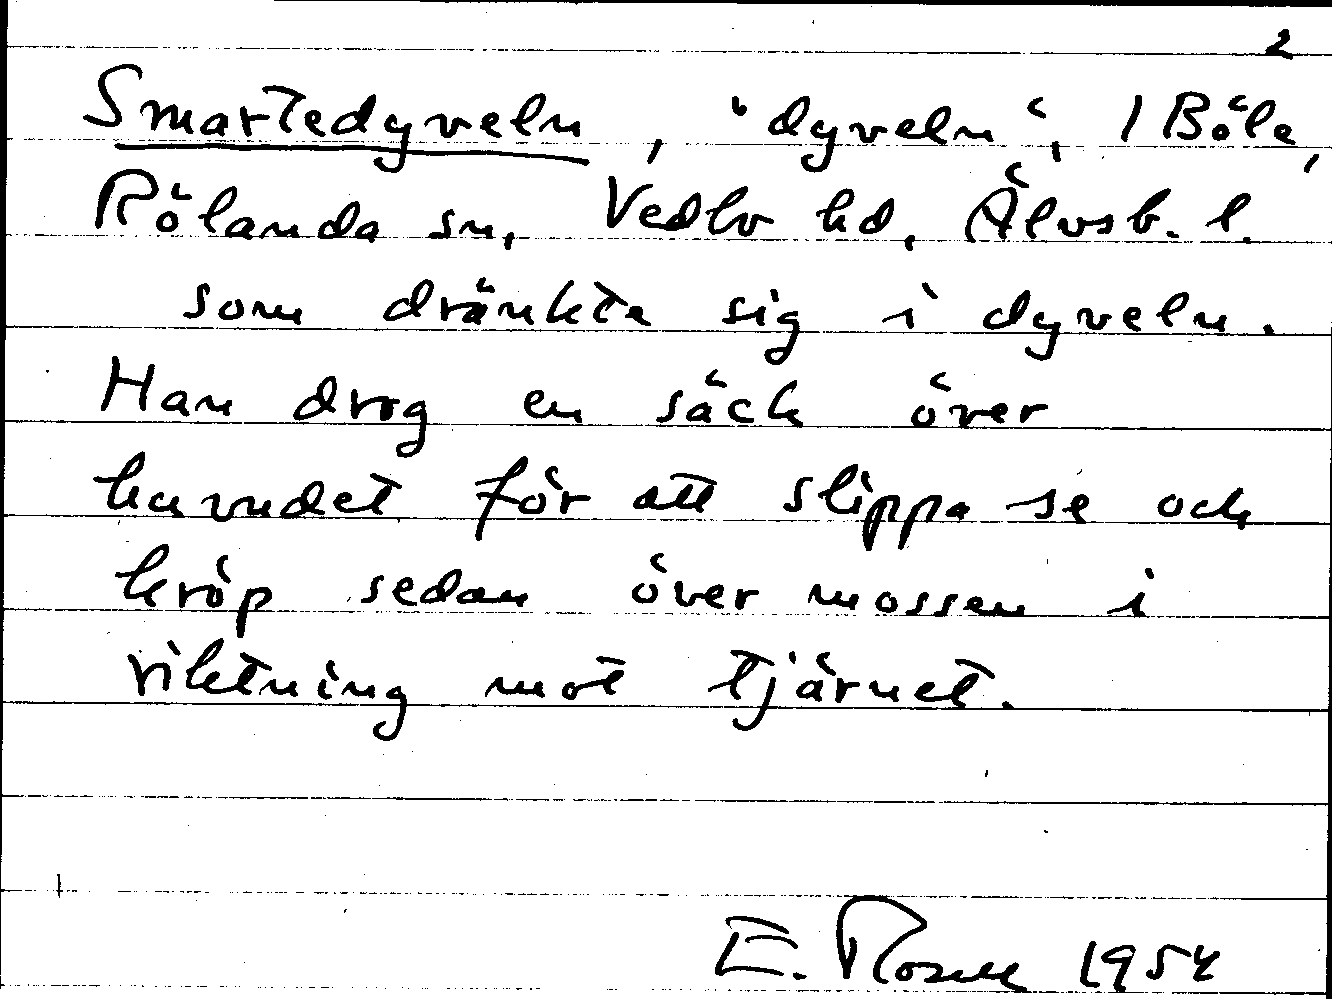 2
Smartedyveln, "dyveln", / Böle,
Rölanda sn, Vedbo hd, Älvsb. l.
som dränkte sig i dyveln.
Han drog en säck över
huvudet för att slippa se och
kröp sedan över mossen i
riktning mot tjärnet.
E. Rosell 1954